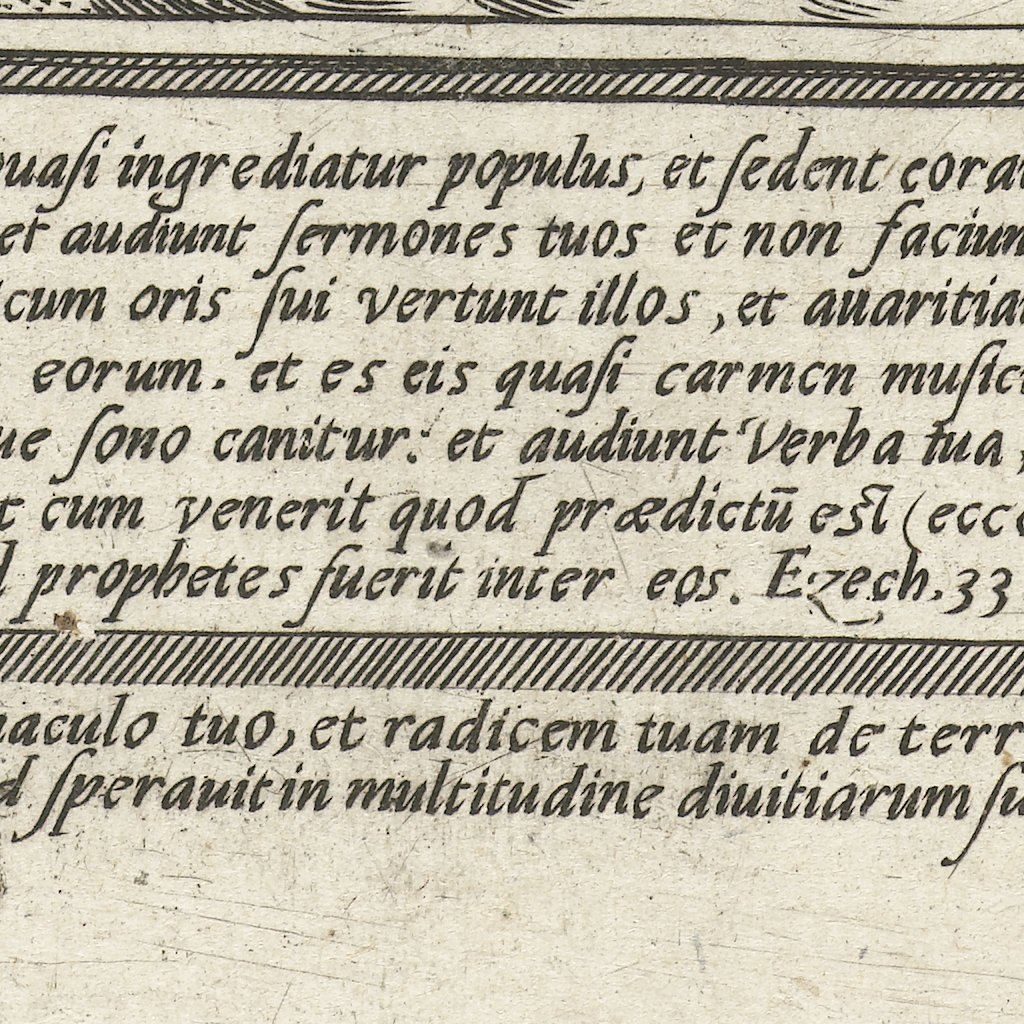 quaſi ingrediatur populus, et ſedent cora
et audiunt ſermones tuos et non faciun
icum oris ſui vertunt illos, et auaritia
eorum. et es eis quaſi carmen muſic
ue ſono canitur: et audiunt Verba tua,
t cum venerit quod prædictū eſt (ecce
d prophetes fuerit inter eos. Ezech. 33
naculo tuo, et radicem tuam de terr
d ſperauit in multitudine diuitiarum ſu